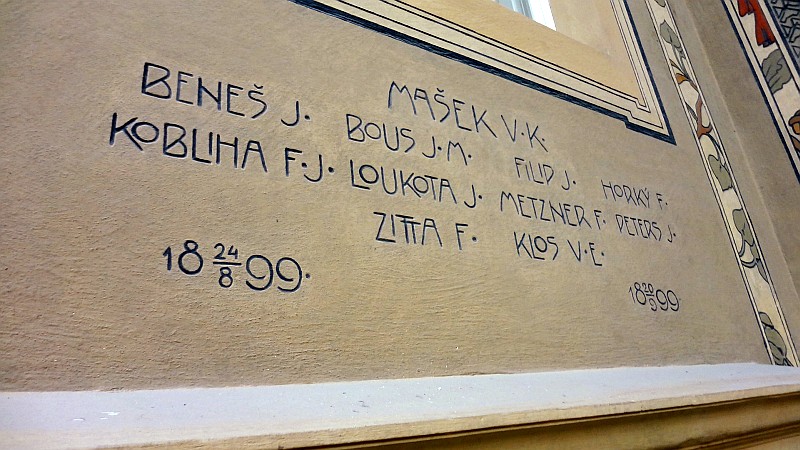 MAŠEK V. K.
BENEŠ J. BOUS J. M. FILIP J. HORKÝ F.
KOBLIHA F. J. LOUKOTA J. METZNER F. PETERS J.
ZITTA F. KLOS V. E.
18 24/8 99. 18 20/9 99